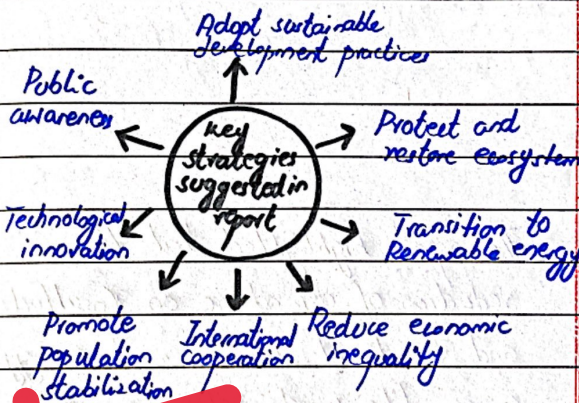 Adopt sustainable
development practices
Public
awareness
key
strategies
suggested in
report
Protect and
restore ecosystem
Technological
innovation
Transition to
Renewable energy
Promote
population
stabilization
International
cooperation
Reduce economic
inequality